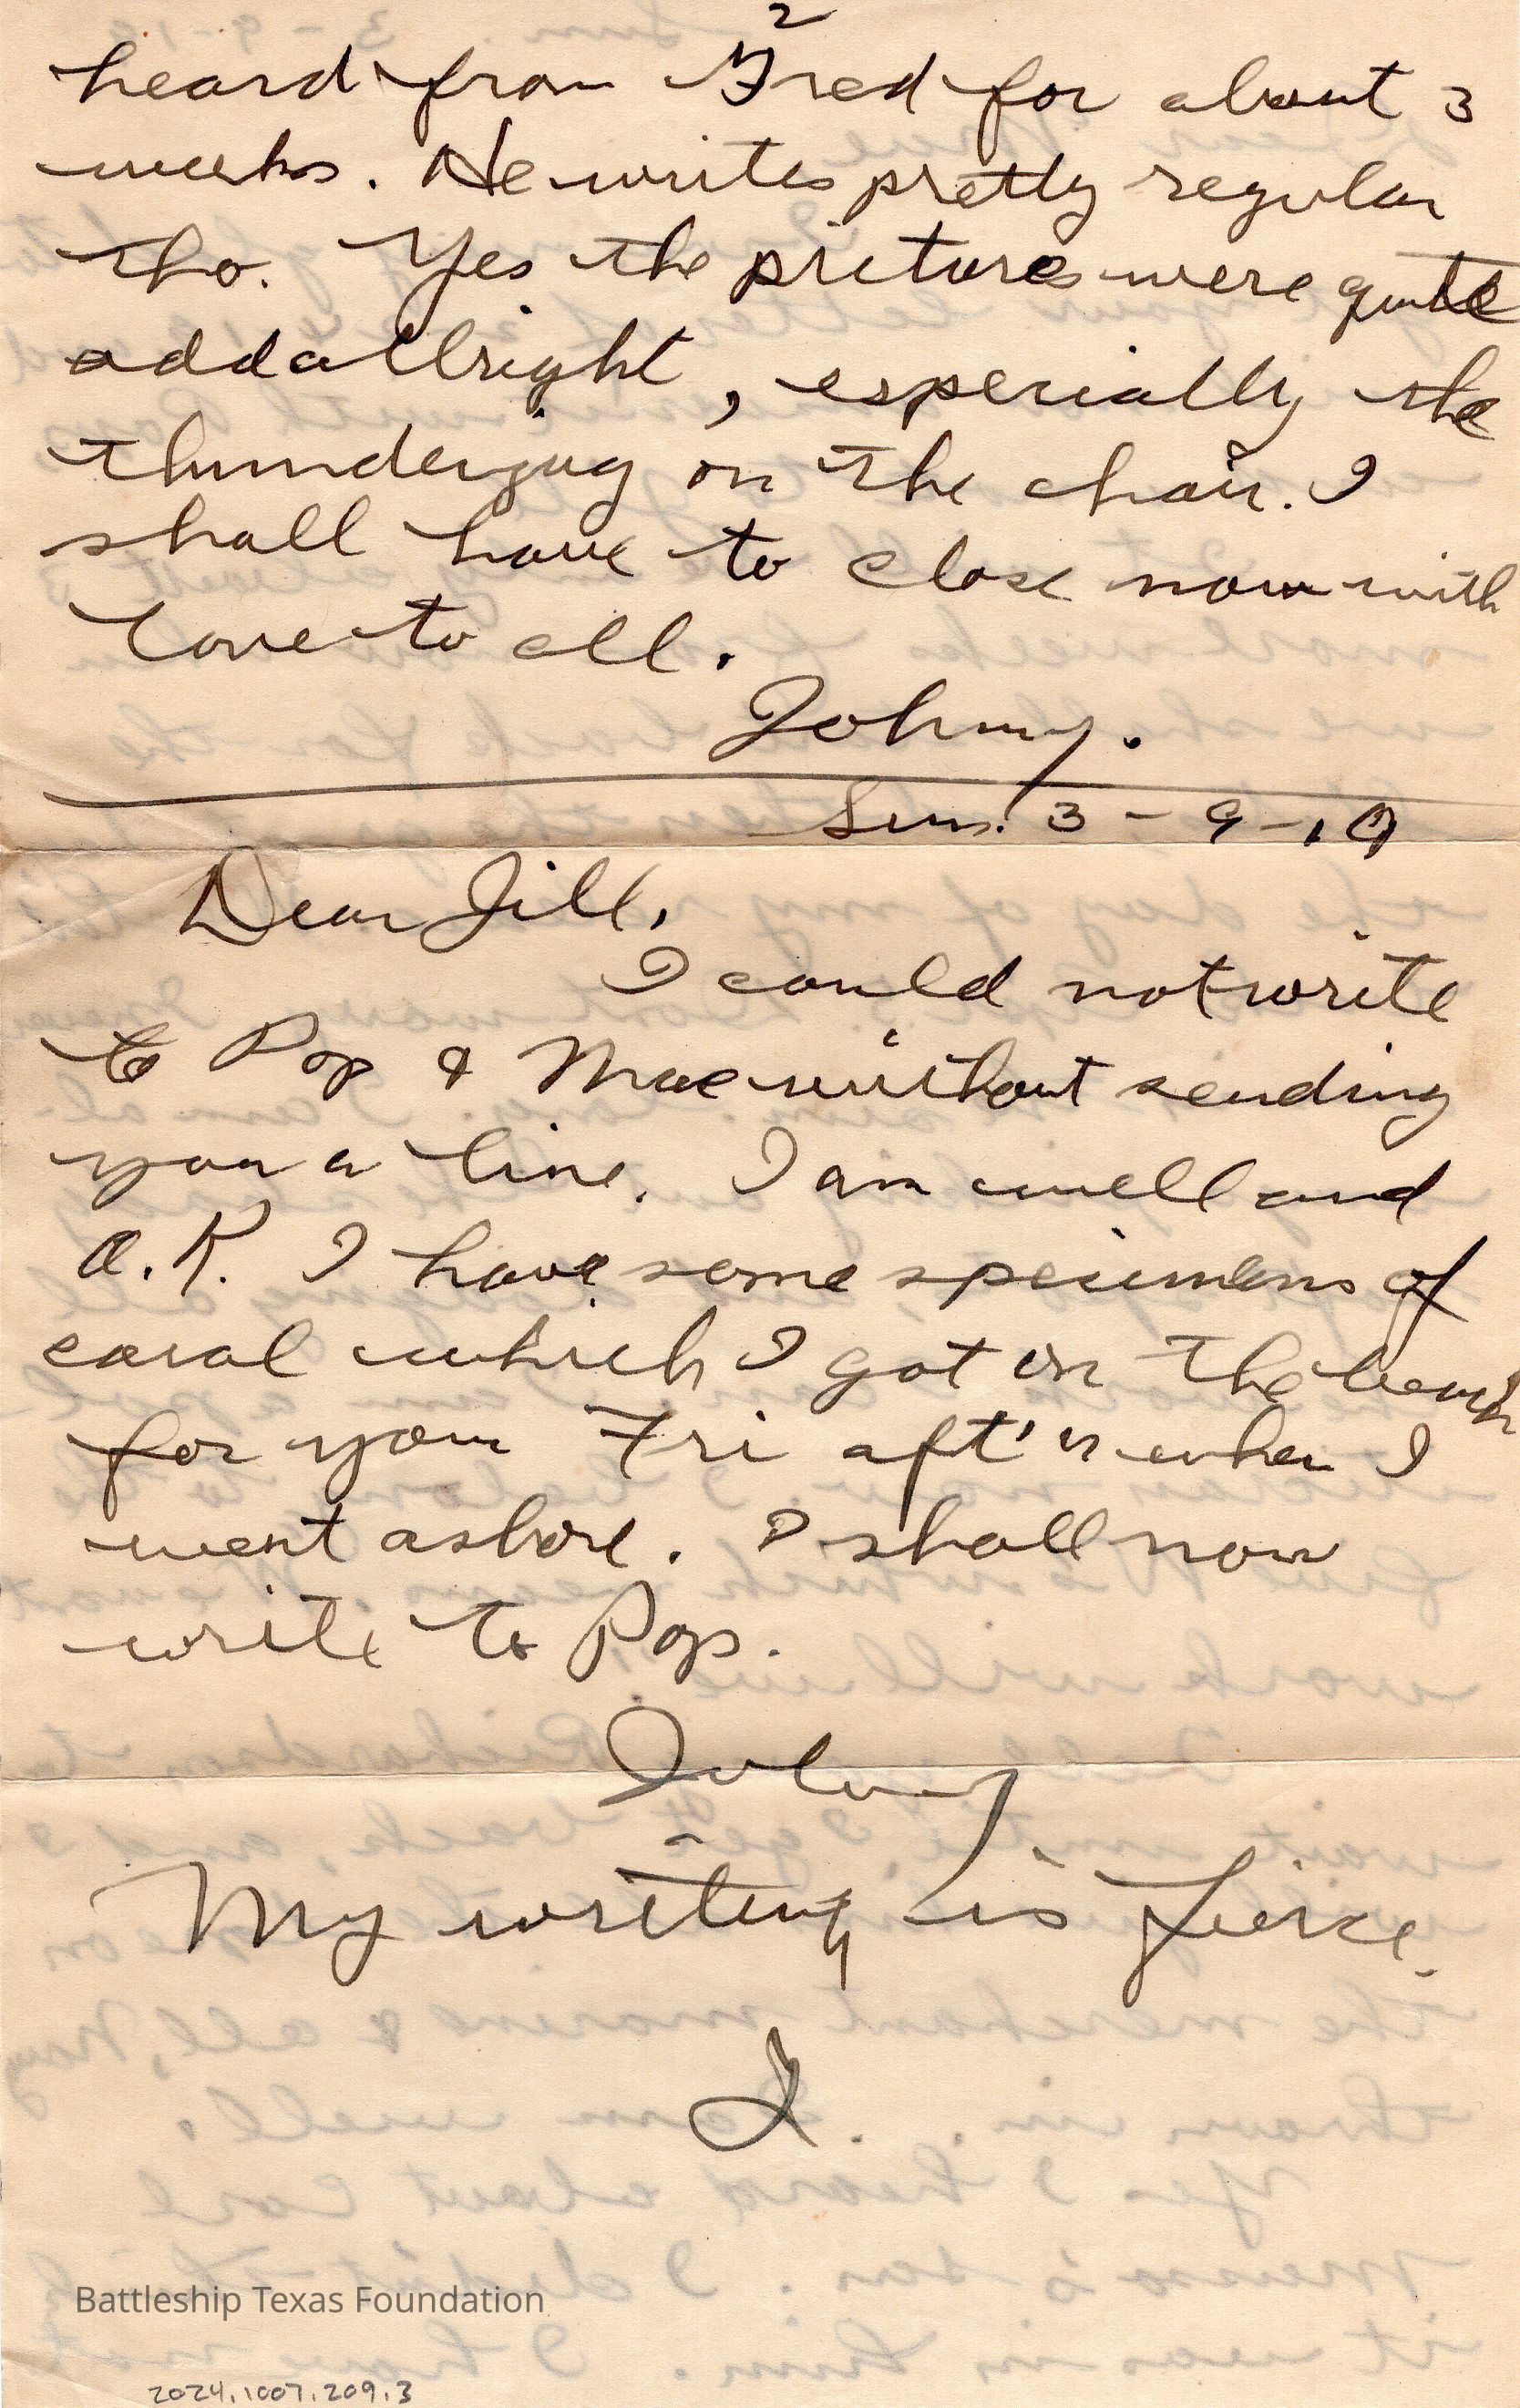 2
heard from Fred for about 3
weeks. He writes pretty regular
tho. Yes the pictures were quite
odd allright, especially the
thunderjug on the chair. I
shall have to close now with
love to all.
Johnny.
Sun. 3-9-19
Dear Jill,
I could not write
to Pop & Mae without sending
you a line. I am well and
O.K. I have some specimens of
coral which I got on the beach
for you Fri aft'n when I
went ashore. I shall now
write to Pop.
Johnny
My writing is fierce.
J.
Battleship Texas Foundation
2024.1007.209.3